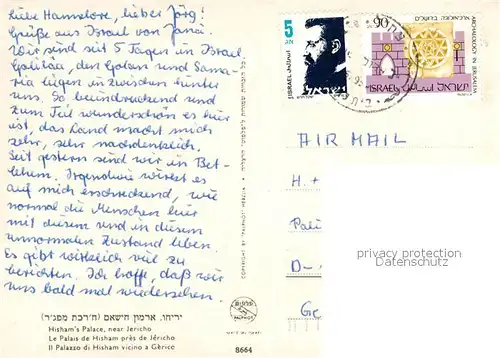 Liebe Hannelore, lieber Jörg!
Grüße aus Israel von Jonai.
Wir sind seit 5 Tagen in Israel
Galiläa, den Golan und Sama-
ria liegen inzwischen hinter
uns. So beeindruckend und
zum Teil wunderschön es hier
ist, das Land macht mich
sehr, sehr nachdenklich.
Seit gestern sind wir in Bet-
lehem. Irgendwie wirkt es
auf mich erschreckend, wie
normal die Menschen hier
mit diesem und in diesem
unnormalen Zustand leben.
Es gibt wirklich viel zu
berichten. Ich hoffe, daß wir
uns bald mal wiedersehen.
יריחו, ארמון הישאם (ח'רבת מפג'ר)
Hisham's Palace, near Jericho
Le Palais de Hisham près de Jéricho
Il Palazzo di Hisham vicino a Gèrico
COPYRIGHT BY PALPHOT HERZLIA
8664
5
ISRAEL
ישראל
ארכיאולוגיה בירושלים
ARCHAEOLOGY IN JERUSALEM
ISRAEL
ישראל
90
AIR MAIL
H. +
D-
privacy protection
Datenschutz